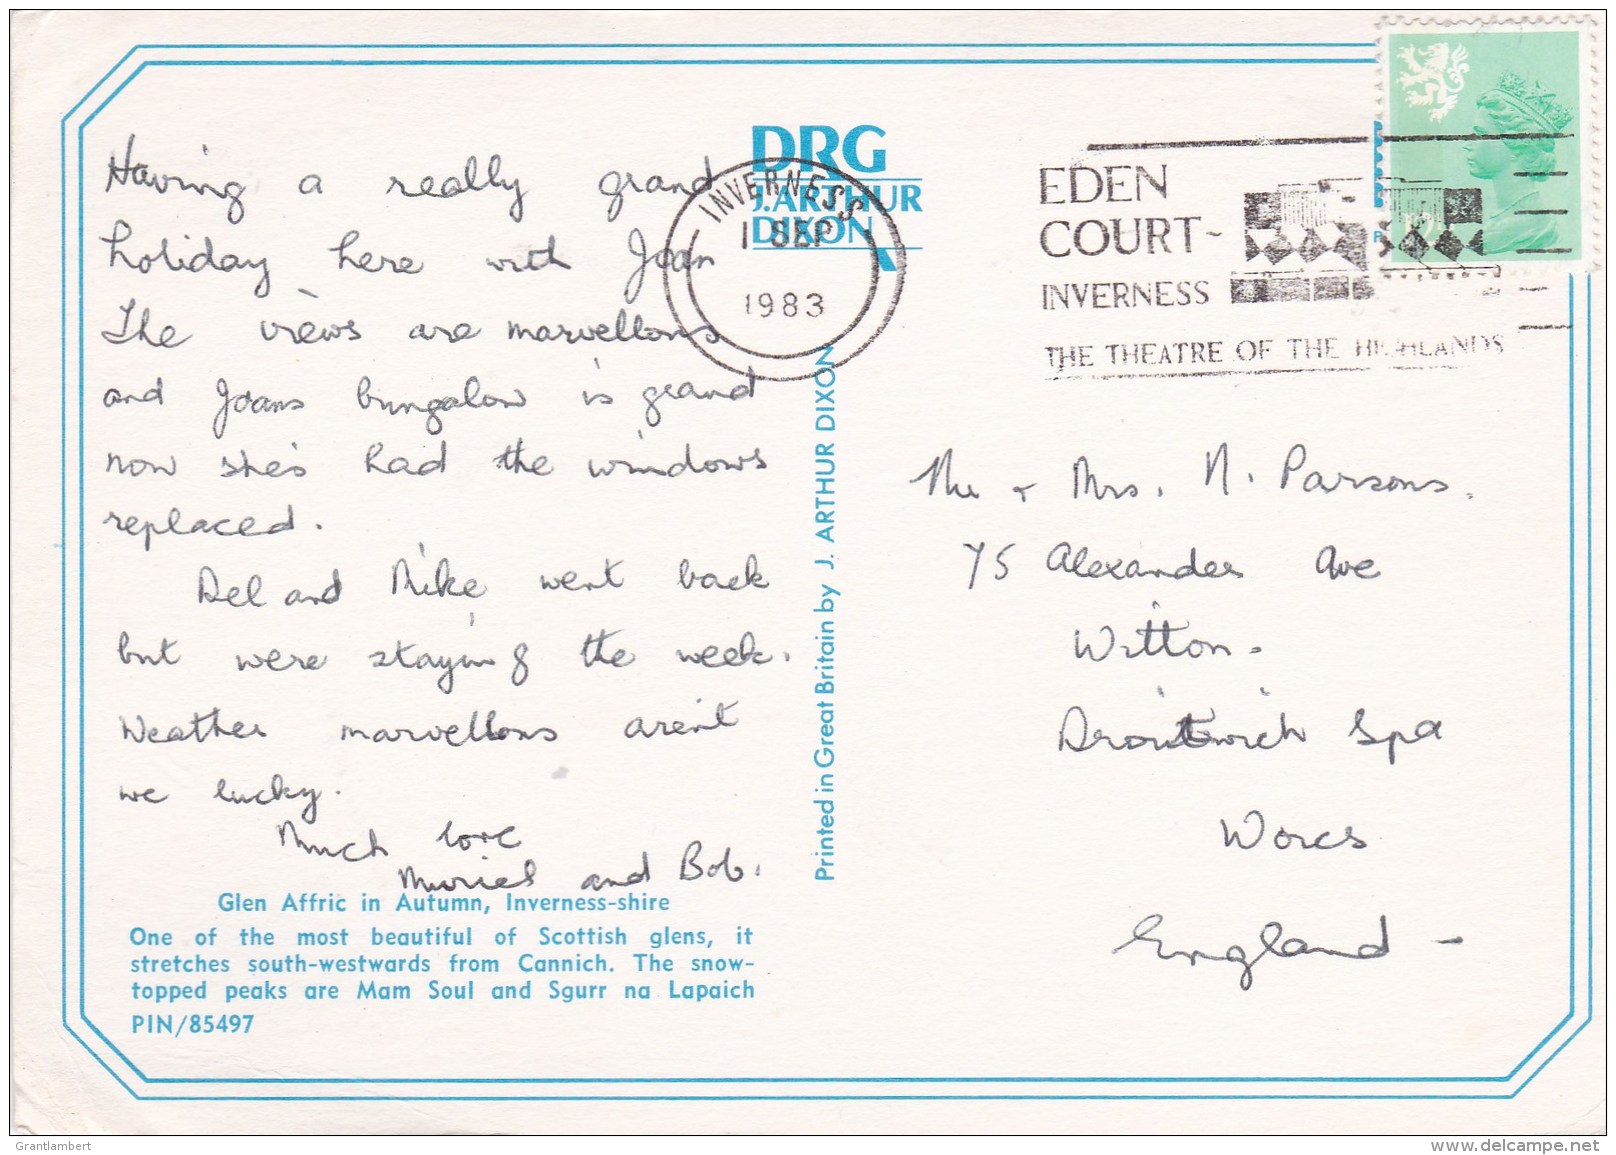 Having a really grand
holiday here with Joan
The views are marvellous
and Joans bungalow is grand
now she's had the windows
replaced.
Del and Mike went back
but were staying the week.
Weather marvellous aren't
we lucky.
Much love
Muriel and Bob.
Glen Affric in Autumn, Inverness-shire
One of the most beautiful of Scottish glens, it
stretches south-westwards from Cannich. The snow-
topped peaks are Mam Soul and Sgurr na Lapaich
PIN/85497
DRG
J. ARTHUR
DIXON
INVERNESS
1 SEP
1983
Printed in Great Britain by J. ARTHUR DIXON
EDEN
COURT-
INVERNESS
THE THEATRE OF THE HIGHLANDS
Mr + Mrs. N. Parsons.
75 Alexander Ave
Witton.
Droitwich Spa
Worcs
England -
Grantlambert
delcampe.net